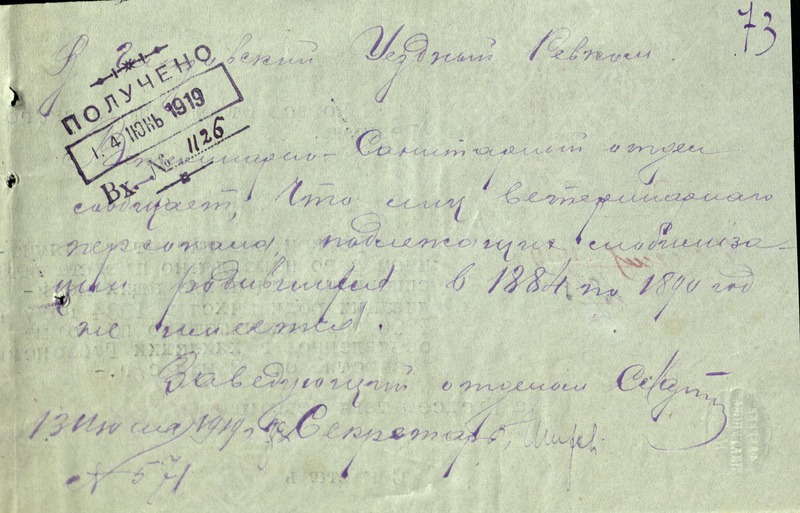 73
В Уездный Ревком.
ПОЛУЧЕНО
14 ИЮНЬ 1919
Вх. № 1126
Санитарный отдел
сообщает, что лиц ветеринарнаго
персонала, подлежащих мобилиза-
ции родившихся в 1884 по 1890 год
не имеется.
Заведующий отделом
13 Июня 1919 г. Секретарь
№ 571